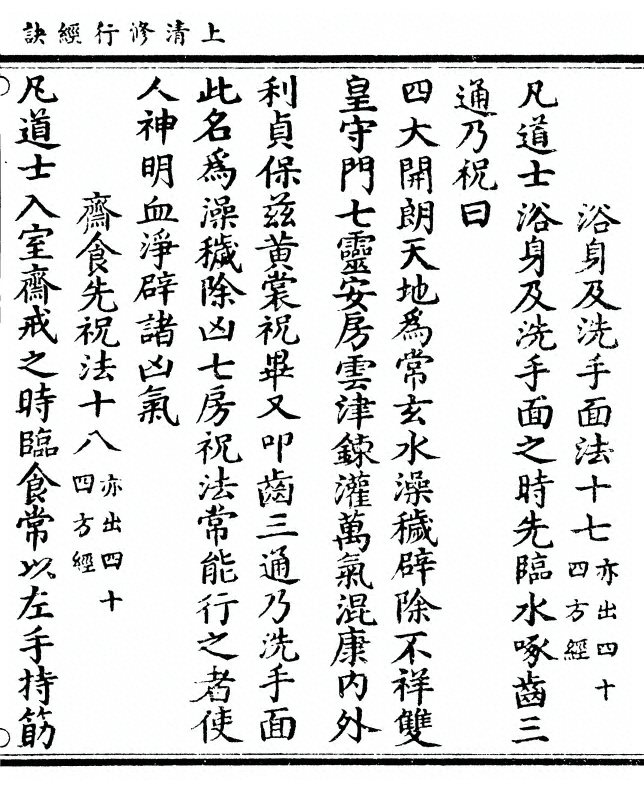 上清修行經訣
浴身及洗手面法十七亦出四十四方經
凡道士浴身及洗手面之時先臨水啄齒三
通乃祝曰
四大開朗天地爲常玄水澡穢辟除不祥雙
皇守門七靈安房雲津鍊灌萬氣混康内外
利貞保茲黃裳祝畢又叩齒三通乃洗手面
此名爲澡穢除凶七房祝法常能行之者使
人神明血淨辟諸凶氣
齋食先祝法十八亦出四十四方經
凡道士入室齋戒之時臨食常以左手持筯